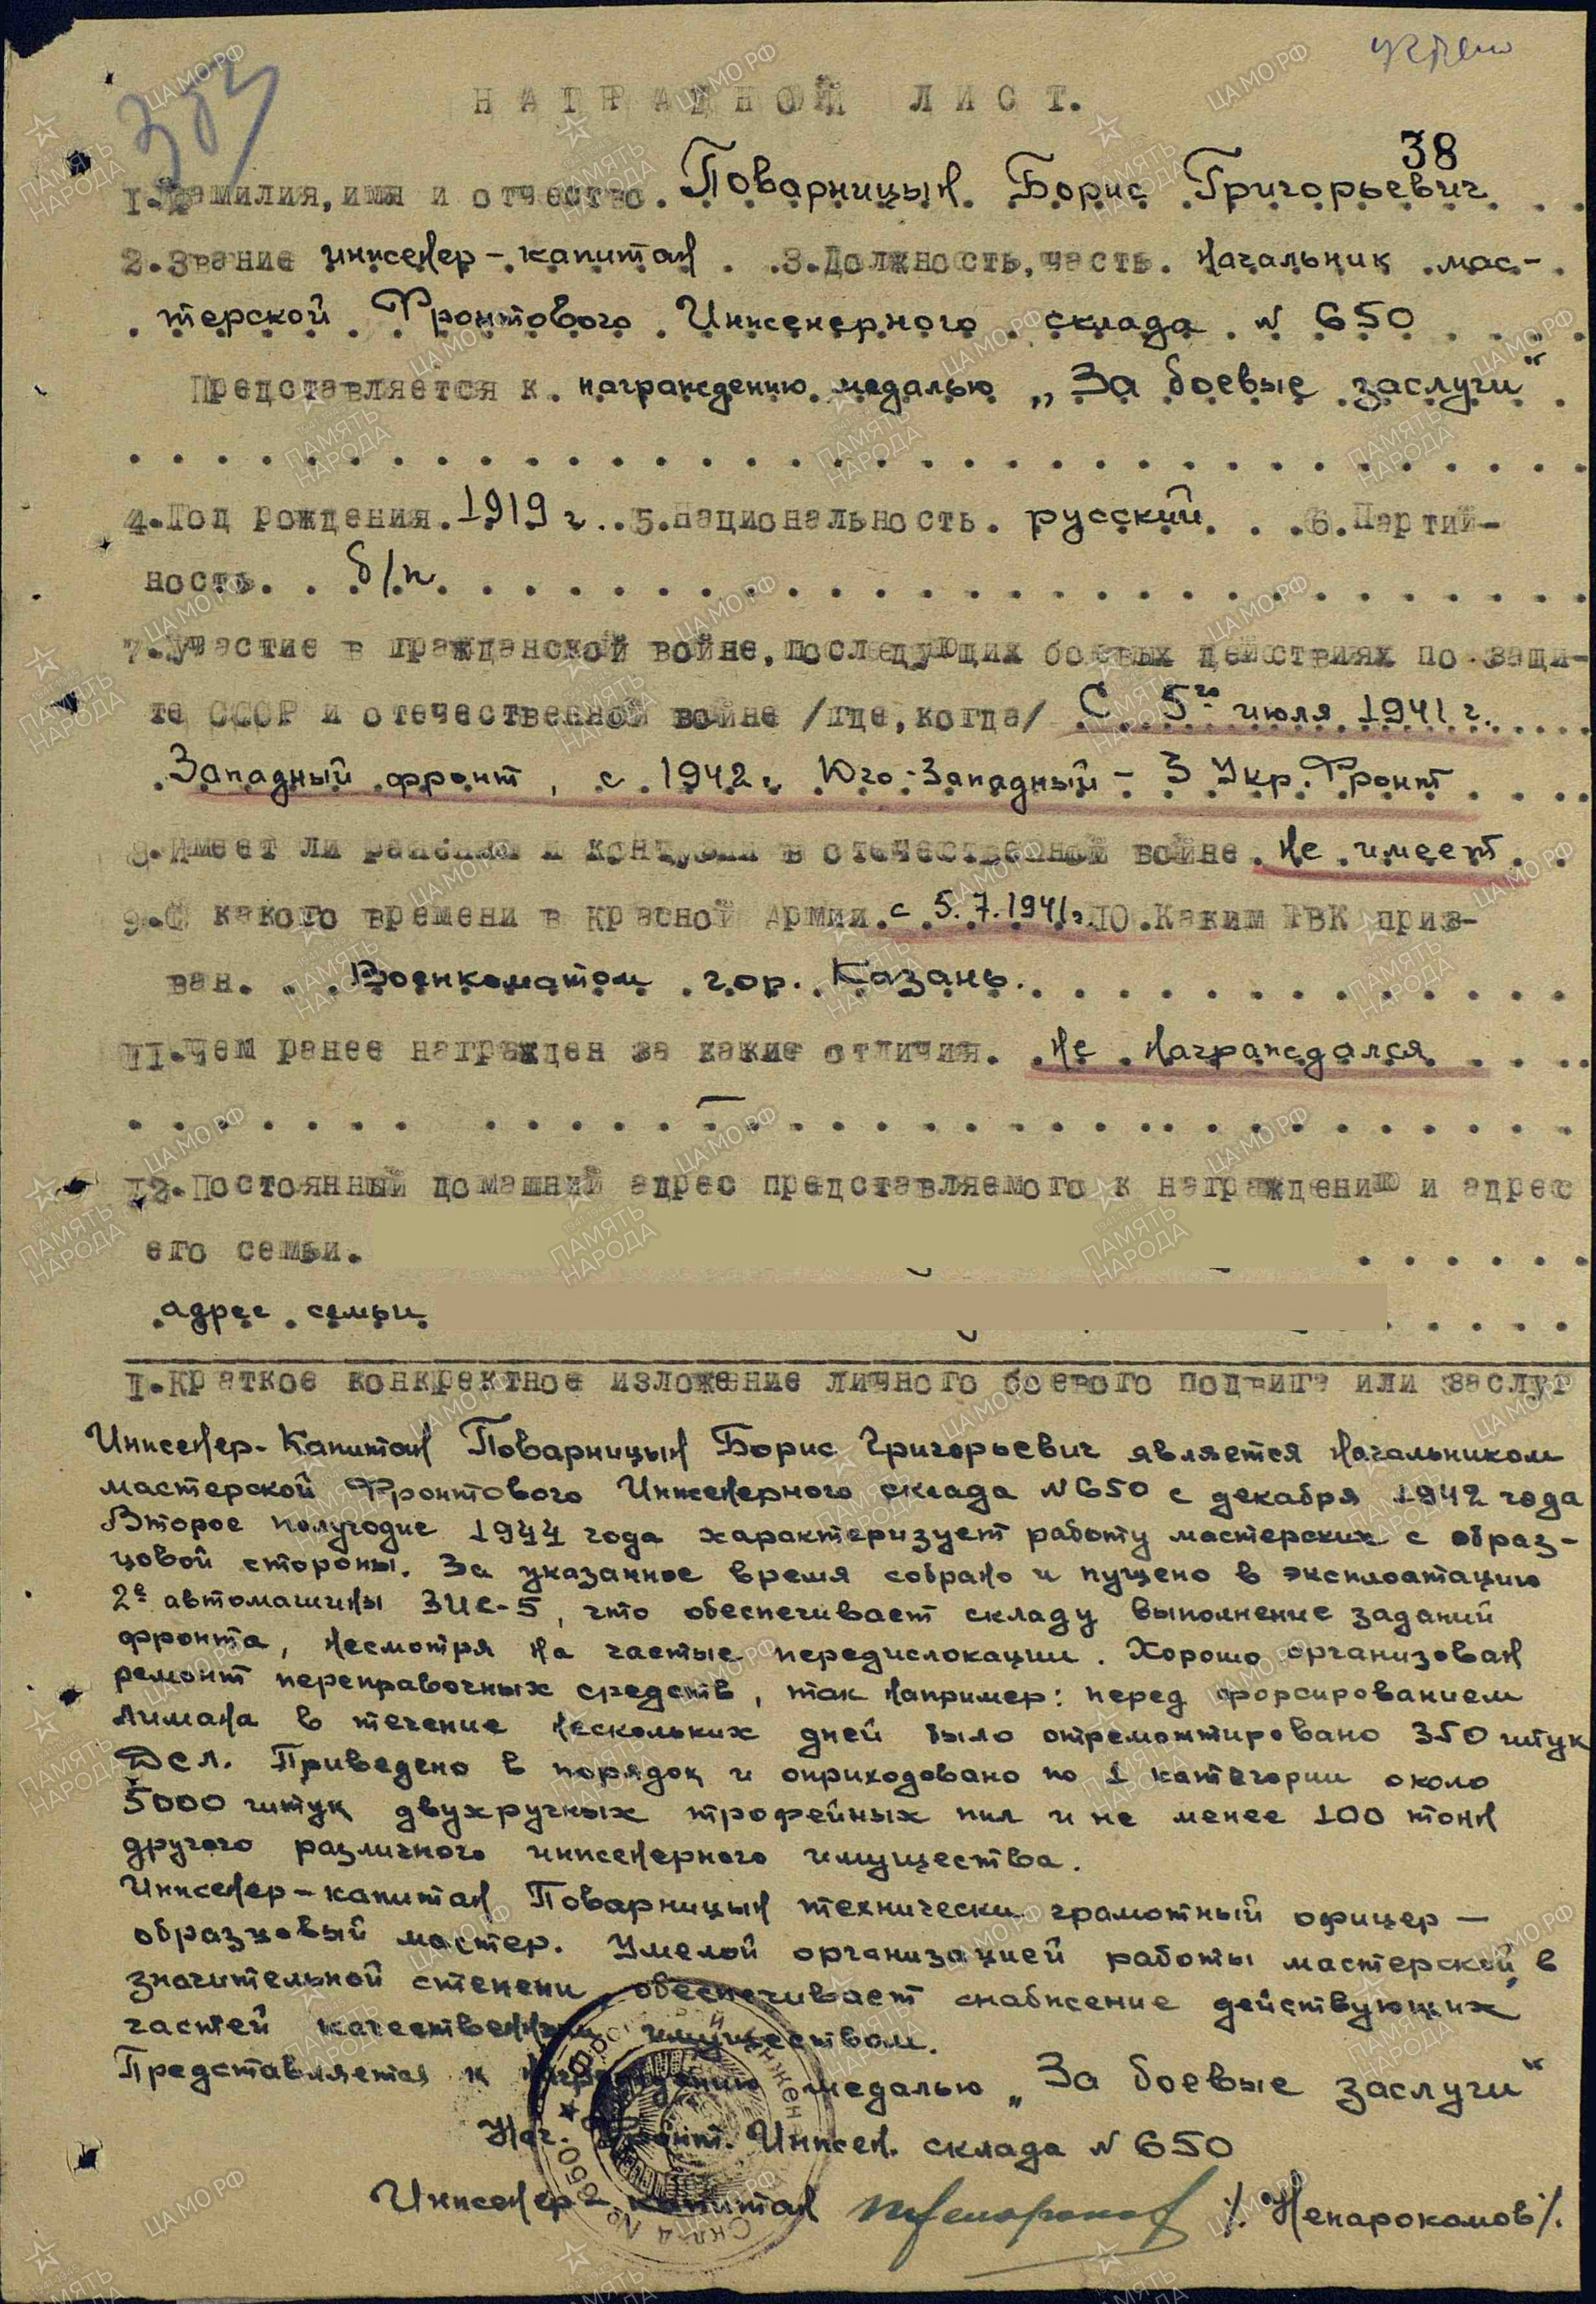 НАГРАДНОЙ ЛИСТ.
38
1.Фамилия, имя и отчество. Поварницын Борис Григорьевич
2.Звание инженер-капитан 3.Должность, часть. Начальник мас-
терской Фронтового Инженерного склада № 650
Представляется к награждению медалью „За боевые заслуги“
4.Год рождения 1919 г. 5.Национальность. русский 6.Партий-
ность б/п
7.Участие в гражданской войне, последующих боевых действиях по защи-
те СССР и отечественной войне /где, когда/ С 5го июля 1941 г.
Западный фронт, с 1942 г. Юго-Западный - 3 Укр. Фронт
8.Имеет ли ранения и контузии в отечественной войне. Не имеет
9.С какого времени в Красной Армии с 5.7.1941 г. 10.Каким РВК приз-
ван. Военкоматом гор. Казань.
11.Чем ранее награжден за какие отличия. Не награждался
12.Постоянный домашний адрес представляемого к награждению и адрес
его семьи.
адрес семьи
I.Краткое конкректное изложение личного боевого подвига или заслуг
Инженер-Капитан Поварницын Борис Григорьевич является начальником
мастерской Фронтового Инженерного склада №650 с декабря 1942 года
Второе полугодие 1944 года характеризует работу мастерских с образ-
цовой стороны. За указанное время собрано и пущено в эксплоатацию
2е автомашины ЗИС-5, что обеспечивает складу выполнение заданий
фронта, несмотря на частые передислокации. Хорошо организован
ремонт переправочных средств, так например: перед форсированием
Лимана в течение нескольких дней было отремонтировано 350 штук
Дсл. Приведено в порядок и оприходовано по 1 категории около
5000 штук двухручных трофейных пил и не менее 100 тонн
другого различного инженерного имущества.
Инженер-капитан Поварницын технически грамотный офицер —
образцовый мастер. Умелой организацией работы мастерской, в
значительной степени, обеспечивает снабжение действующих
частей качественным имуществом.
Представляется к награждению медалью „За боевые заслуги“
Нач. Фронт. Инжен. склада № 650
Инженер-капитан /Ненарокомов/.